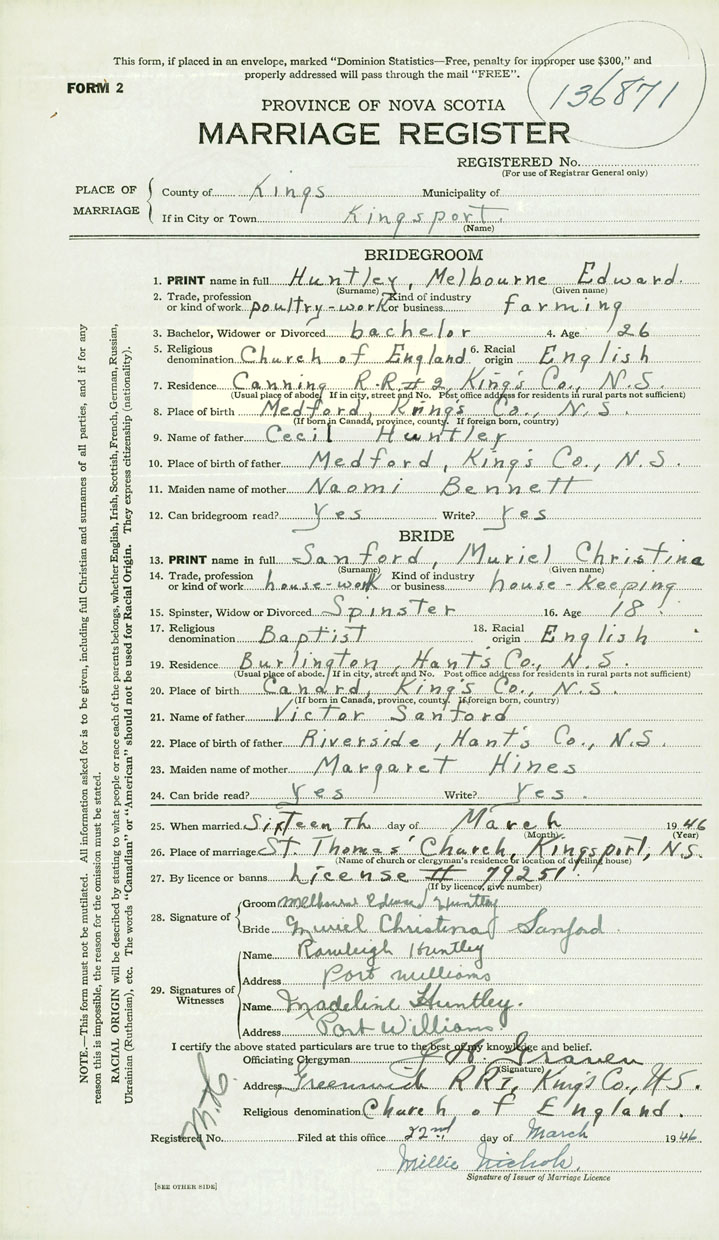 This form, if placed in an envelope, marked "Dominion Statistics—Free, penalty for improper use $300," and
properly addressed will pass through the mail "FREE".
FORM 2
136871
PROVINCE OF NOVA SCOTIA
MARRIAGE REGISTER
REGISTERED No.
(For use of Registrar General only)
PLACE OF MARRIAGE
County of Kings Municipality of
If in City or Town Kingsport.
(Name)
BRIDEGROOM
1. PRINT name in full Huntley, Melbourne Edward.
(Surname) (Given name)
2. Trade, profession or kind of work poultry-work Kind of industry or business farming
3. Bachelor, Widower or Divorced bachelor 4. Age 26
5. Religious denomination Church of England 6. Racial origin English
7. Residence Canning R.R. # 2, King's Co., N.S.
(Usual place of abode. If in city, street and No. Post office address for residents in rural parts not sufficient)
8. Place of birth Medford, King's Co., N.S.
(If born in Canada, province, county. If foreign born, country)
9. Name of father Cecil Huntley
10. Place of birth of father Medford, King's Co., N.S.
11. Maiden name of mother Naomi Bennett
12. Can bridegroom read? Yes Write? Yes
BRIDE
13. PRINT name in full Sanford, Muriel Christina
(Surname) (Given name)
14. Trade, profession or kind of work house-work Kind of industry or business house-keeping
15. Spinster, Widow or Divorced Spinster 16. Age 18.
17. Religious denomination Baptist 18. Racial origin English
19. Residence Burlington, Hant's Co., N.S.
(Usual place of abode. If in city, street and No. Post office address for residents in rural parts not sufficient)
20. Place of birth Canard, King's Co., N.S.
(If born in Canada, province, county. If foreign born, country)
21. Name of father Victor Sanford
22. Place of birth of father Riverside, Hant's Co., N.S.
23. Maiden name of mother Margaret Hines
24. Can bride read? Yes Write? Yes.
25. When married Sixteenth day of March 1946
(Month) (Year)
26. Place of marriage St. Thomas' Church, Kingsport, N.S.
(Name of church or clergyman's residence or location of dwelling house)
27. By licence or banns License # 79251
(If by licence, give number)
28. Signature of
Groom Melbourne Edward Huntley
Bride Muriel Christina Sanford
29. Signatures of Witnesses
Name Rawleigh Huntley
Address Port Williams
Name Madeline Huntley.
Address Port Williams
I certify the above stated particulars are true to the best of my knowledge and belief.
Officiating Clergyman
(Signature)
Address Greenwich R R 1, King's Co., N.S.
Religious denomination Church of England.
Registered No. Filed at this office 22nd day of March 1946
Millie Nichols.
Signature of Issuer of Marriage Licence
[SEE OTHER SIDE]
NOTE.—This form must not be mutilated. All information asked for is to be given, including full Christian and surnames of all parties, and if for any
reason this is impossible, the reason for the omission must be stated.
RACIAL ORIGIN will be described by stating to what people or race each of the parents belongs, whether English, Irish, Scottish, French, German, Russian,
Ukrainian (Ruthenian), etc. The words "Canadian" or "American" should not be used for Racial Origin. They express citizenship (nationality).